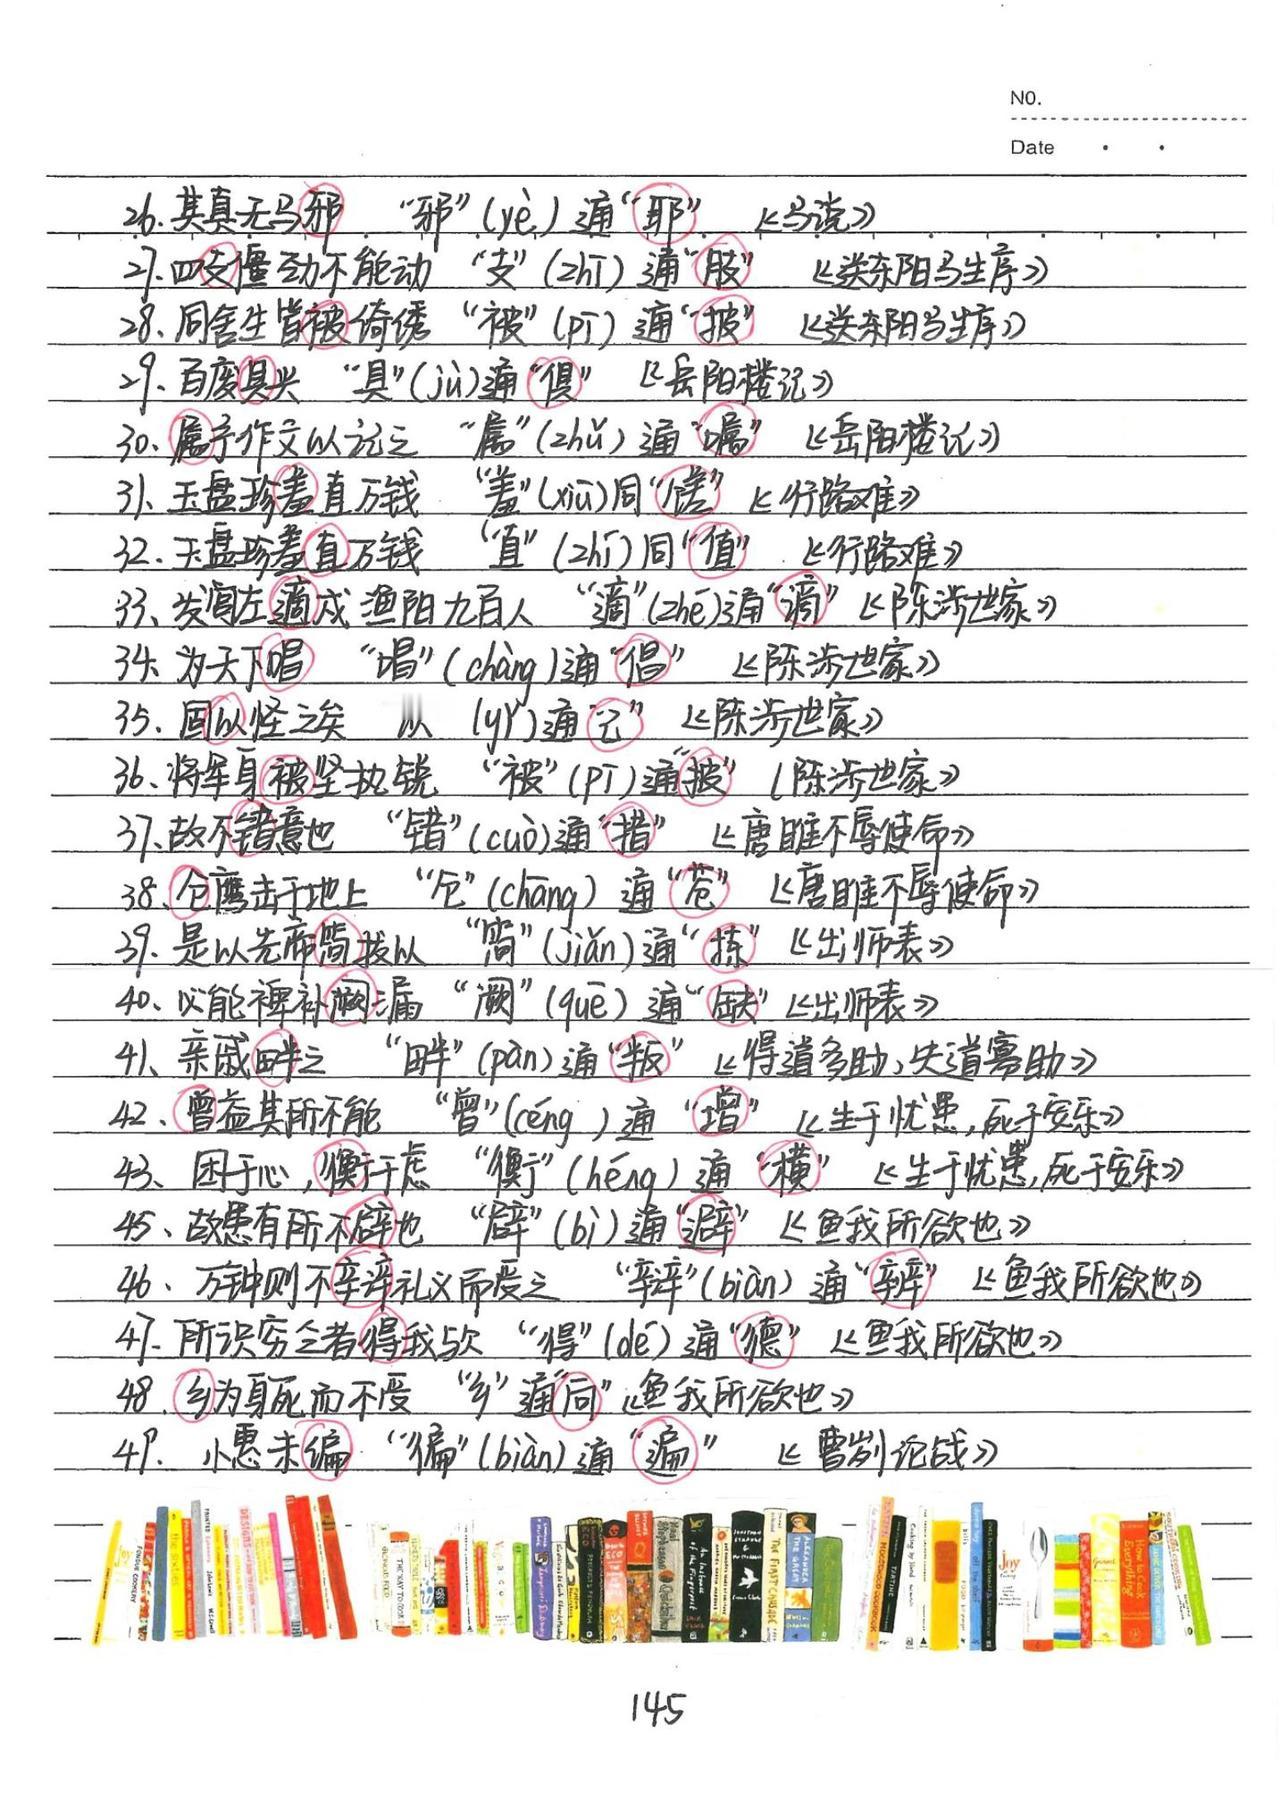 NO.
Date
26. 其真无马邪 “邪”(yè)通“耶” 《马说》
27. 四支僵劲不能动 “支”(zhī)通“肢” 《送东阳马生序》
28. 同舍生皆被绮绣 “被”(pī)通“披” 《送东阳马生序》
29. 百废具兴 “具”(jù)通“俱” 《岳阳楼记》
30. 属予作文以记之 “属”(zhǔ)通“嘱” 《岳阳楼记》
31、玉盘珍羞直万钱 “羞”(xiū)同“馐” 《行路难》
32. 玉盘珍羞直万钱 “直”(zhí)同“值” 《行路难》
33、发闾左適戍渔阳九百人 “適”(zhé)通“谪” 《陈涉世家》
34. 为天下唱 “唱”(chàng)通“倡” 《陈涉世家》
35. 固以怪之矣 以 (yǐ)通“已” 《陈涉世家》
36、将军身被坚执锐 “被”(pī)通“披” (陈涉世家》
37. 故不错意也 “错”(cuò)通“措” 《唐雎不辱使命》
38. 仓鹰击于地上 “仓”(chāng)通“苍” 《唐雎不辱使命》
39. 是以先帝简拔以 “简”(jiǎn)通“拣” 《出师表》
40. 必能裨补阙漏 “阙”(quē)通“缺” 《出师表》
41、亲戚畔之 “畔”(pàn)通“叛” 《得道多助、失道寡助》
42、曾益其所不能 “曾”(céng)通“增” 《生于忧患,死于安乐》
43、困于心,衡于虑 “衡”(héng)通“横” 《生于忧患,死于安乐》
45、故患有所不辟也 “辟”(bì)通“避” 《鱼我所欲也》
46、万钟则不辩礼义而受之 “辩”(biàn)通“辨” 《鱼我所欲也》
47. 所识穷乏者得我欤 “得”(dé)通“德” 《鱼我所欲也》
48. 乡为身死而不受 “乡”通“向” 《鱼我所欲也》
49. 小惠未徧 “徧”(biàn)通“遍” 《曹刿论战》
145